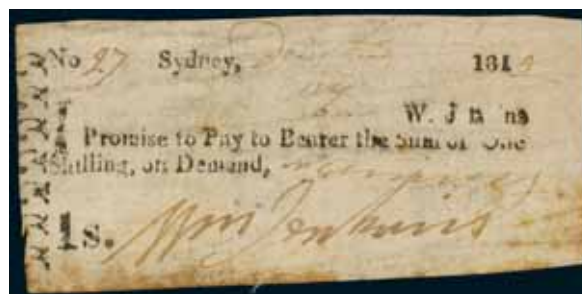 No 27 Sydney, 181
W. J
Promise to Pay to Bearer the Sum of One
Shilling, on Demand,
1s. Wm Jenkins